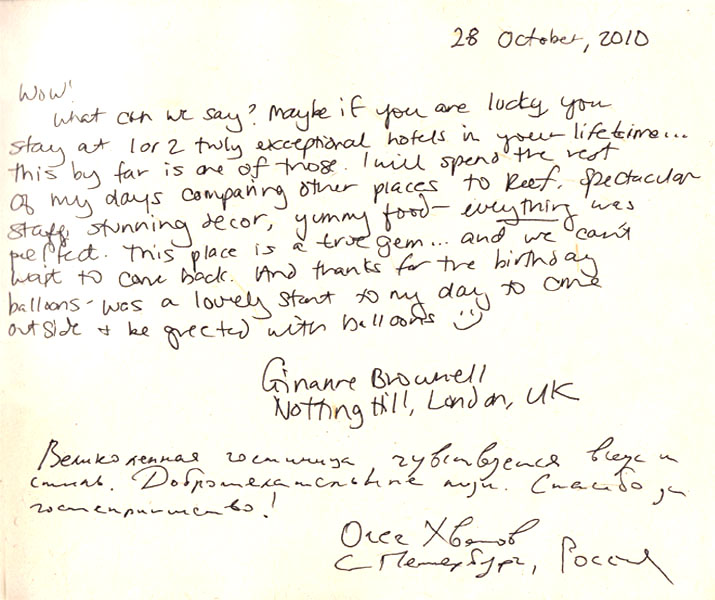 28 October, 2010
Wow!
What can we say? Maybe if you are lucky you
stay at 1 or 2 truly exceptional hotels in your lifetime...
this by far is one of those. I will spend the rest
of my days comparing other places to Reef. Spectacular
staff, stunning decor, yummy food - everything was
perfect. This place is a true gem... and we can't
wait to come back. And thanks for the birthday
balloons - was a lovely start to my day to come
outside + be greeted with balloons
Ginanne Brownell
Notting Hill, London, UK
Великолепная гостиница чувствуется вкус и
стиль. Доброжелательные люди. Спасибо за
гостеприимство!
С-Петербург, Россия